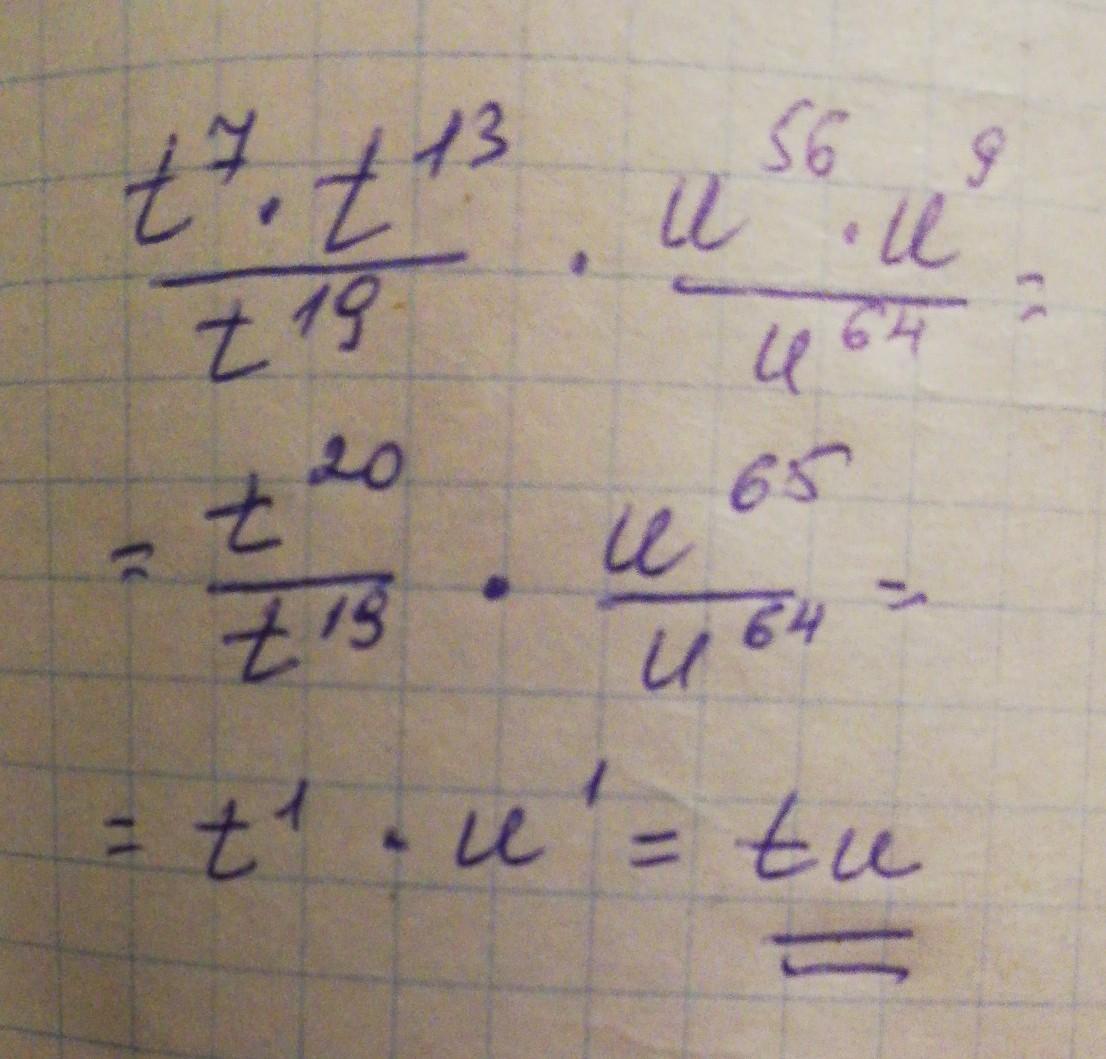 t⁷ · t¹³ / t¹⁹ · u⁵⁶ · u⁹ / u⁶⁴ =
= t²⁰ / t¹⁹ · u⁶⁵ / u⁶⁴ =
= t¹ · u¹ = tu